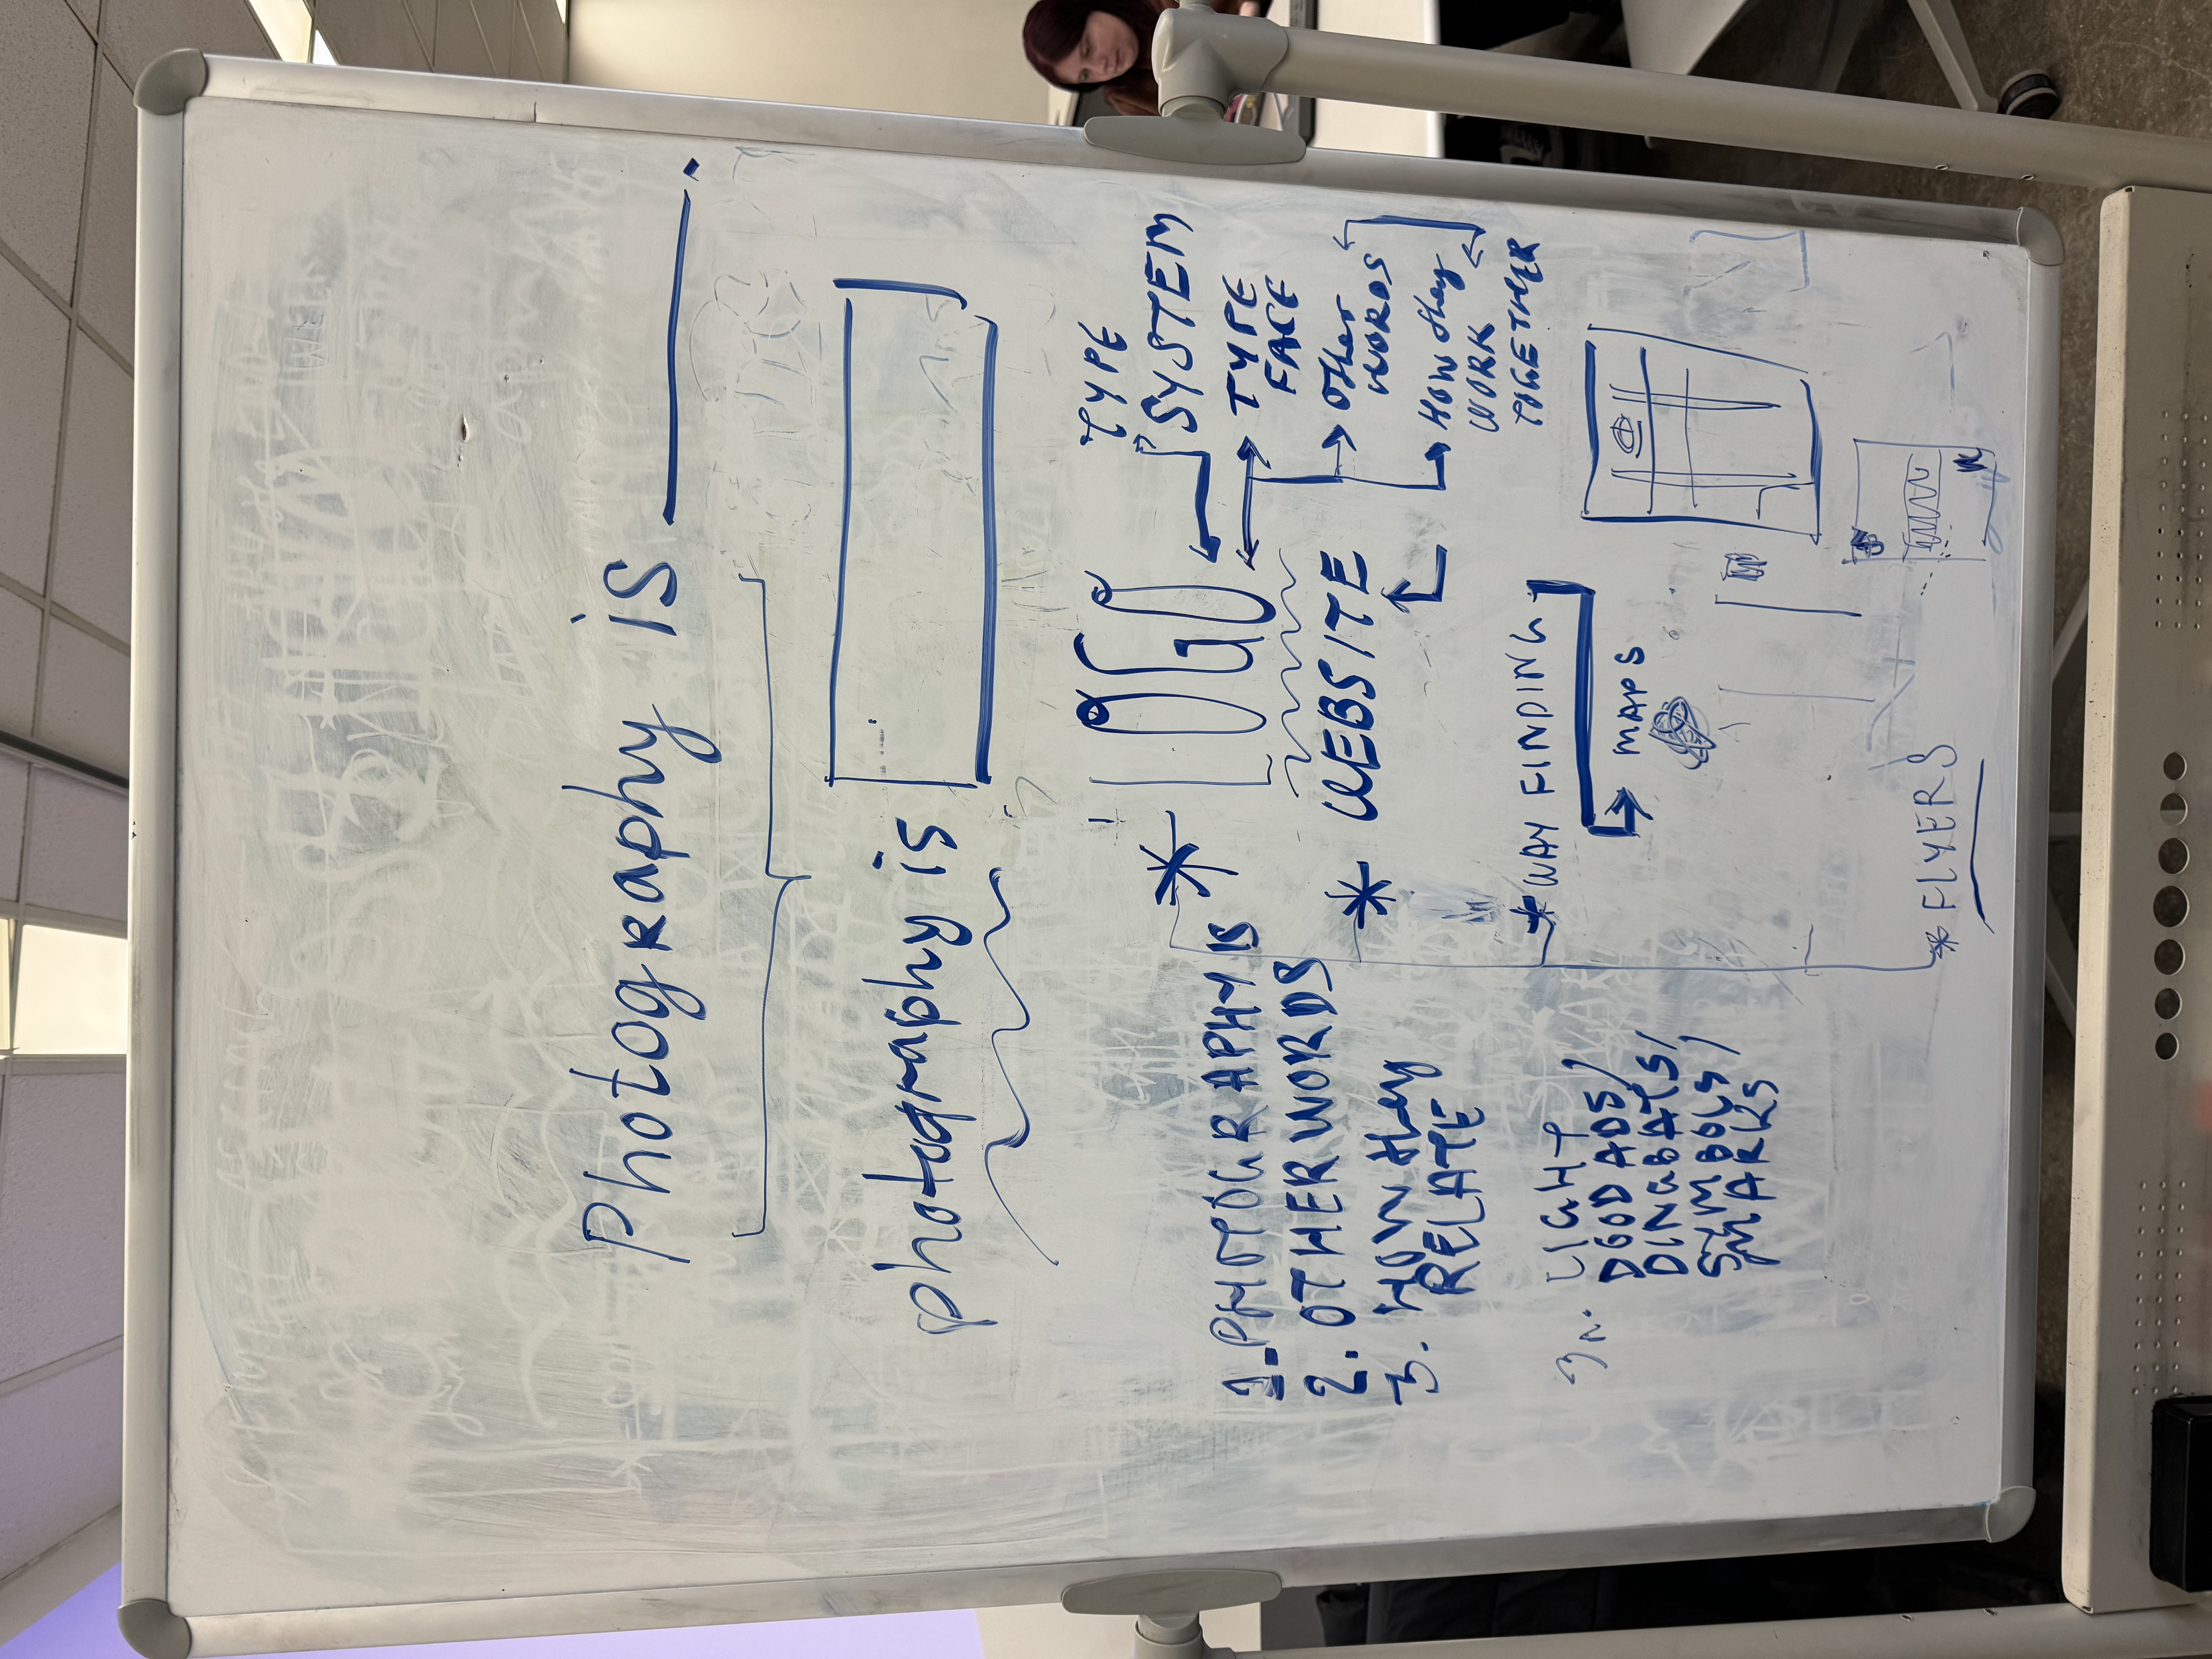 Photography is ____.
photography is
1. PHOTOGRAPHY IS
2. OTHER WORDS
3. HOW they
RELATE
LIGHT
DOO DADS/
DINGBATS/
SYMBOLS/
MARKS
* LOGO
TYPE
SYSTEM
TYPE
FACE
Other
WORDS
HOW they
WORK
TOGETHER
* WEBSITE
* WAY FINDING
MAPS
* FLYERS